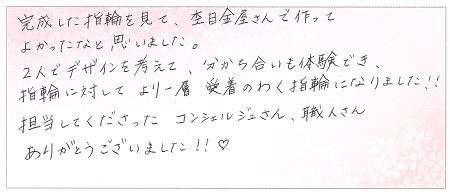 完成した指輪を見て、杢目金屋さんで作って
よかったなと思いました。
2人でデザインを考えて、分かち合いも体験でき、
指輪に対して より一層 愛着のわく指輪になりました!!
担当してくださった コンシェルジュさん、職人さん
ありがとうございました!!♡